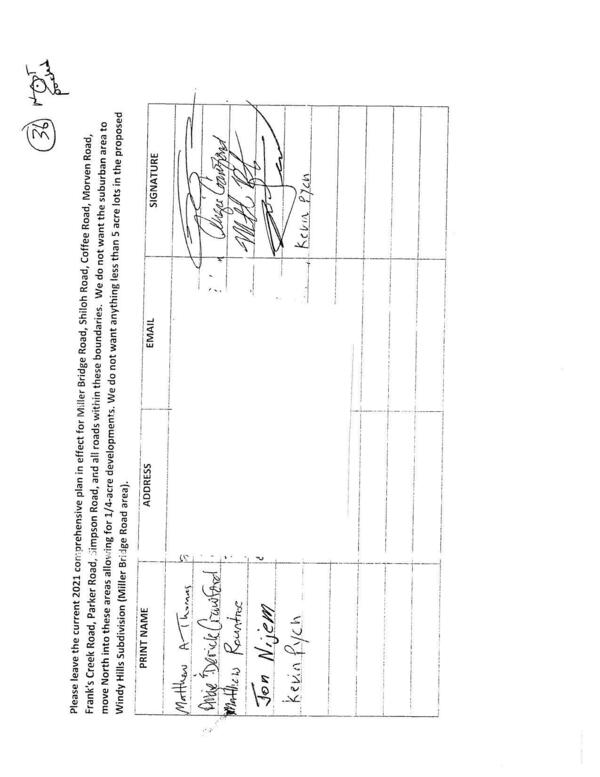 36
NOT
Please leave the current 2021 comprehensive plan in effect for Miller Bridge Road, Shiloh Road, Coffee Road, Morven Road,
Frank's Creek Road, Parker Road, Simpson Road, and all roads within these boundaries. We do not want the suburban area to
move North into these areas allowing for 1/4-acre developments. We do not want anything less than 5 acre lots in the proposed
Windy Hills Subdivision (Miller Bridge Road area).
PRINT NAME ADDRESS EMAIL SIGNATURE
Matthew A Thomas
Angie Derick Crawford Angie Crawford
Matthew Rountree
Jon Nijem
Kevin Pych Kevin Pych